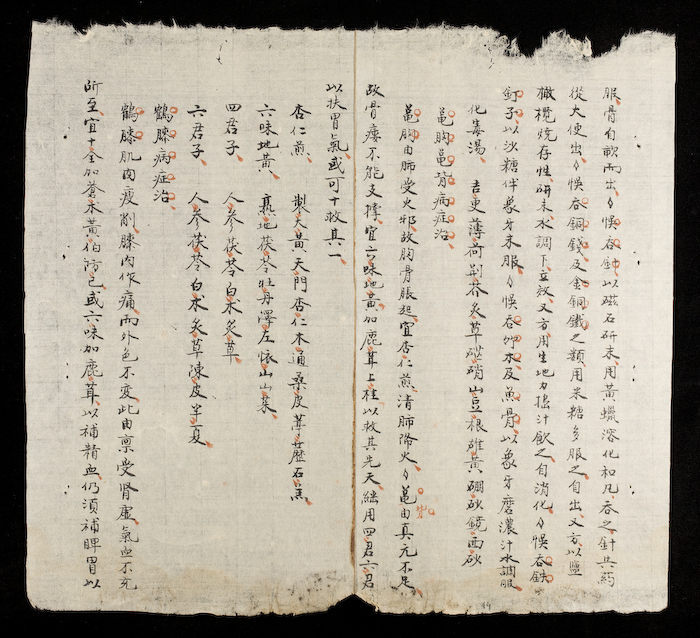 服骨自軟而出〻悞吞針以磁石研末用黃蠟溶化和凡吞之針共葯
從大便出〻悞吞銅錢及金銅鐵之類用米糖多服之自出又方以塩
橄欖燒存性研末水調下立效又方用生地力搖汁飲之自消化〻悞吞鉄
釘子以沙糖伴象牙末服〻悞吞竹木及魚骨以象牙磨濃汁水調服
化毒湯 吉更薄荷荊芥炙草硭硝山豆根雄黃硼砂鏡面砂
龜胸龜背病症治
龜胸由肺受火邪故胸骨脹起宜杏仁煎清肺降火〻龜背由真元不足
故骨痿不能支撐宜六味地黃加鹿茸上桂以救其先天継用四君六君
以扶胃氣或可十救其一
杏仁煎 製大黃天門杏仁木通桑皮葶藶石羔
六味地黃 熟地茯苓牡丹澤左怀山山茱
四君子 人參茯苓白朮炙草
六君子 人參茯苓白朮炙草陳皮半夏
鶴膝病症治
鶴膝肌肉瘦削膝內作痛而外色不変此由禀受腎虛氣血不充
所至宜十全加蒼朮黃伯防己或六味加鹿茸以補精血仍須補脾胃以